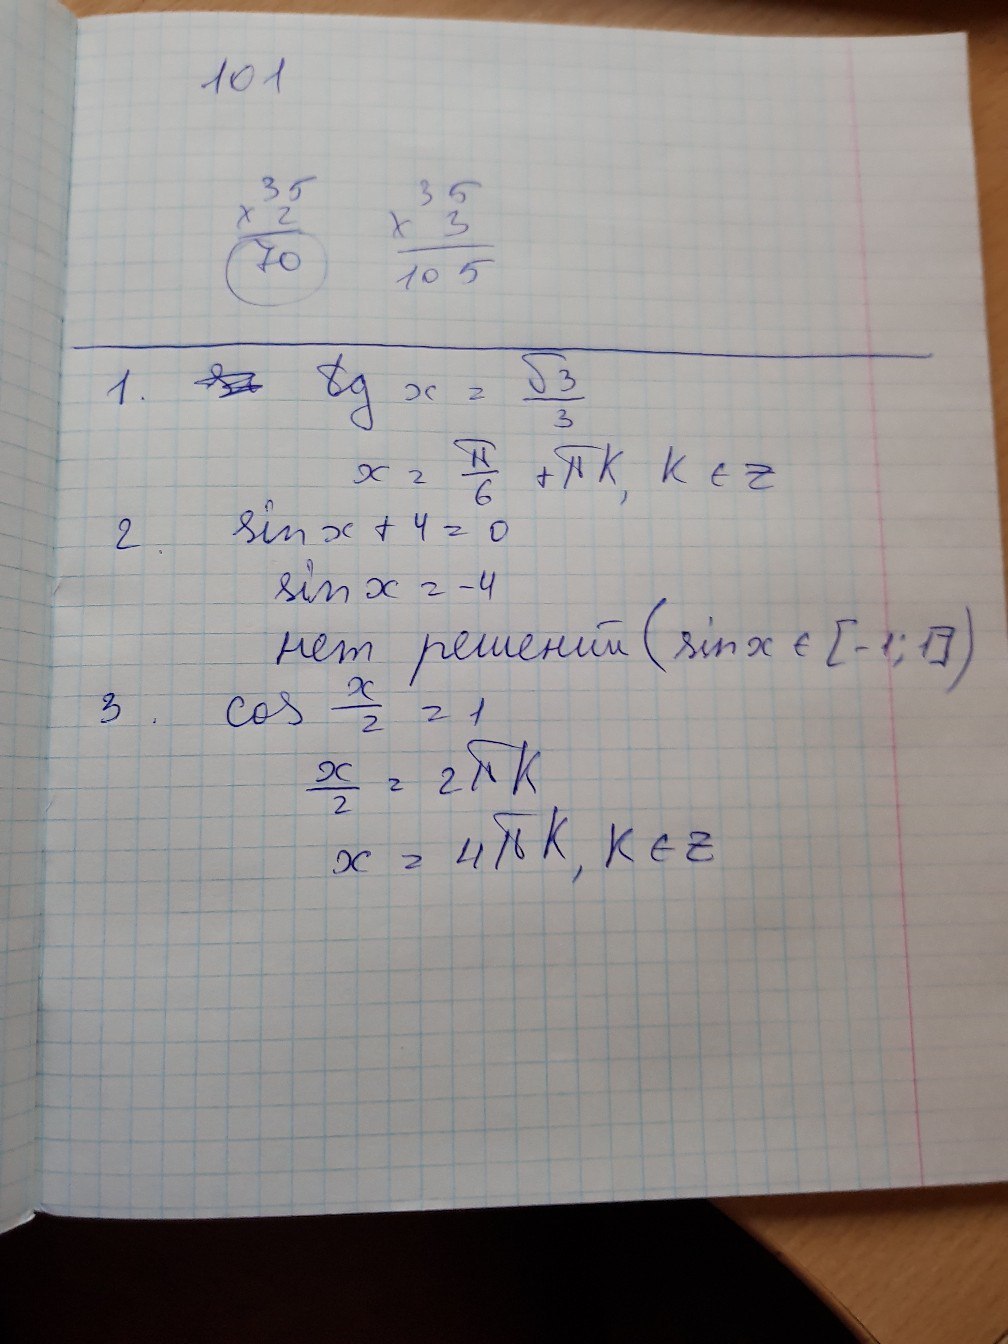 101
35 35
× 2 × 3
70 105
1. tg x = √3/3
x = π/6 + πK, K ∈ Z
2. sin x + 4 = 0
sin x = -4
нет решений (sin x ∈ [-1; 1])
3. cos x/2 = 1
x/2 = 2πK
x = 4πK, K ∈ Z